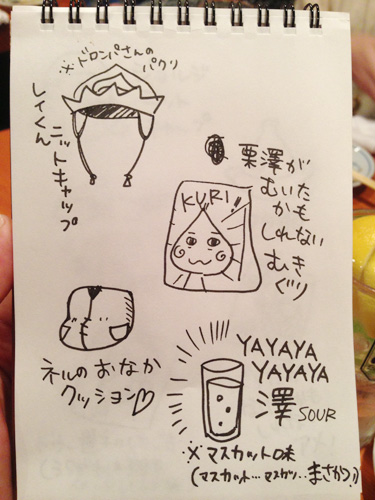 ※ドロンパさんの
パクリ
レイくん
ニットキャップ
栗澤が
むいた
かも
しれない
むき
ぐり
KURI!!
ネルのおなか
クッション♡
YAYAYA
YAYAYA
澤 SOUR
※マスカット味
(マスカット…マスカッ‥まさかつ!)